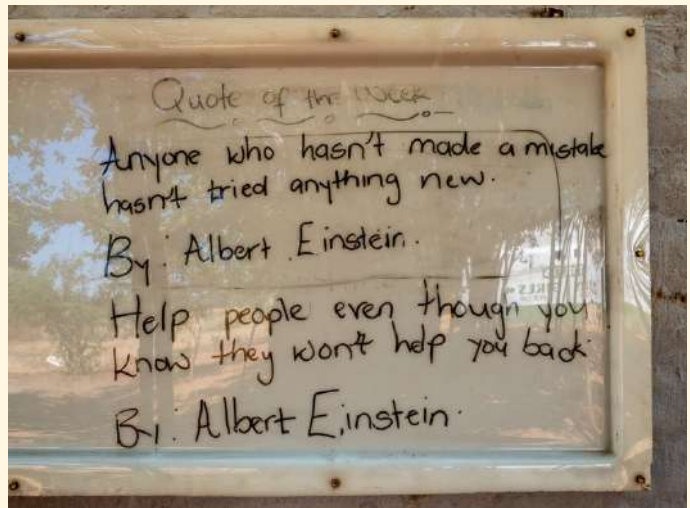 Quote of the Week
Anyone who hasn't made a mistake
hasn't tried anything new.
By: Albert Einstein.
Help people even though you
know they won't help you back
By: Albert Einstein.